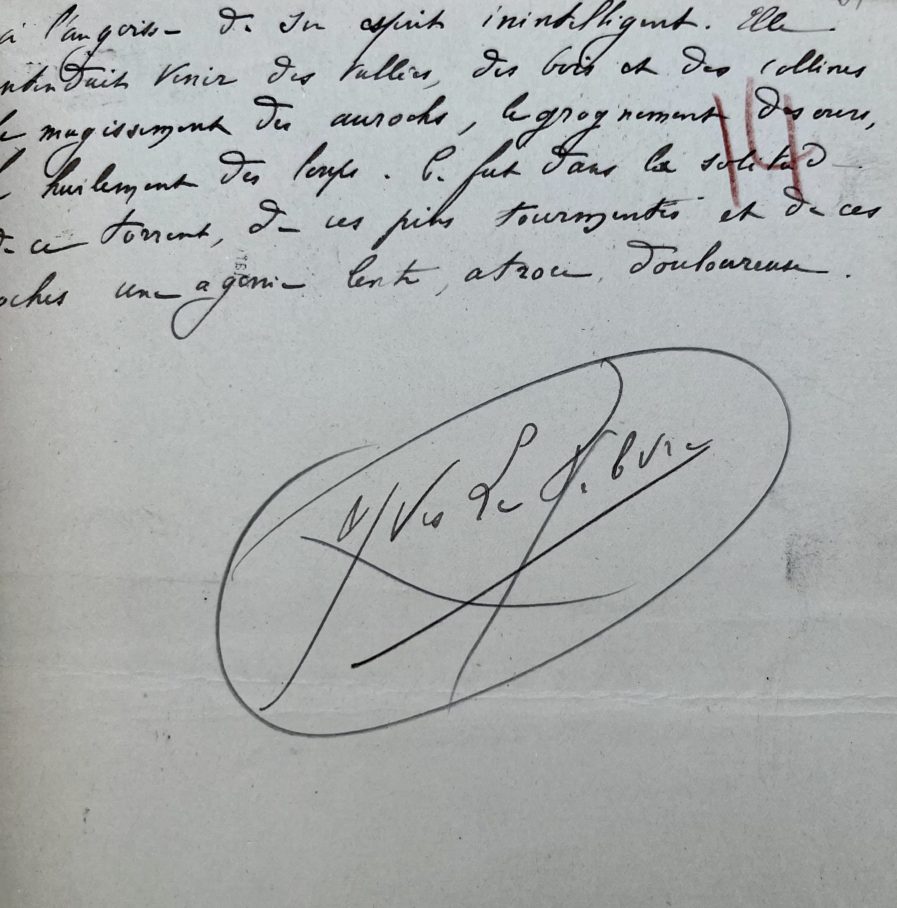 à l'angoisse de son esprit inintelligent. Elle
entendait venir des vallées, des bois et des collines
le mugissement des aurochs, le grognement des ours,
le hurlement des loups. Ce fut dans la solitude
de ce torrent, de ces pins tourmentés et de ces
roches une agonie lente, atroce, douloureuse.
Yves Le Febvre